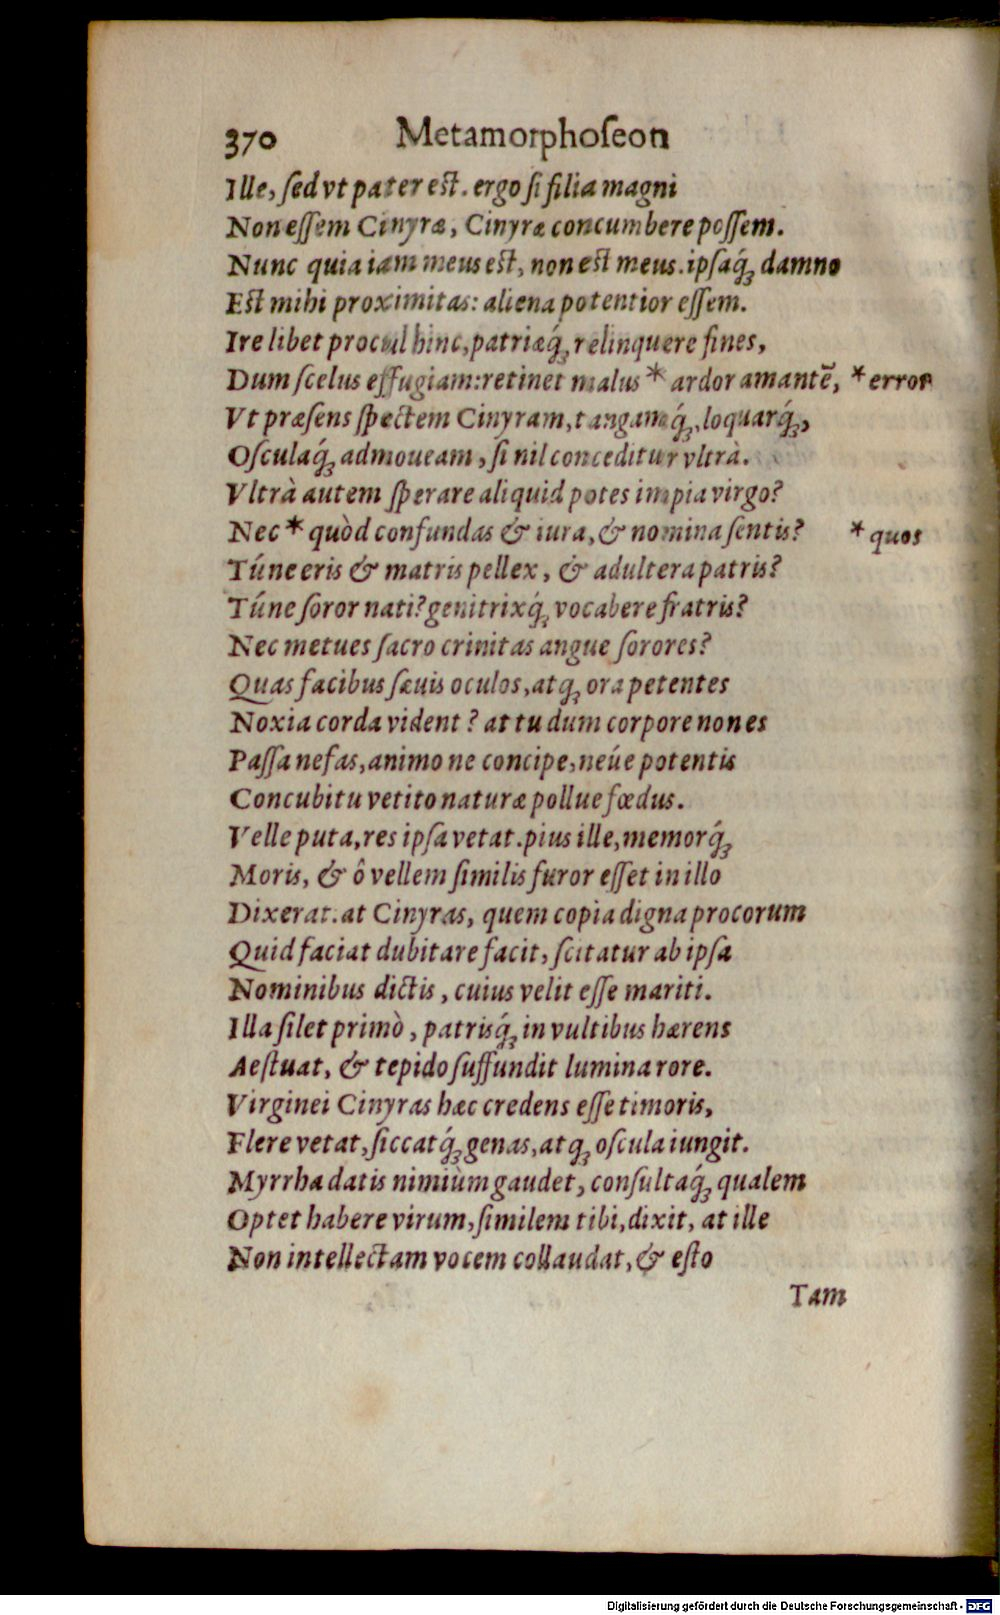 370 Metamorphoſeon
Ille, ſed vt pater eſt. ergo ſi filia magni
Non eſſem Cinyræ, Cinyræ concumbere poſſem.
Nunc quia iam meus eſt, non eſt meus. ipſaq́ꝫ damno
Eſt mihi proximitas: aliena potentior eſſem.
Ire libet procul hinc, patriæq́ꝫ relinquere fines,
Dum ſcelus effugiam: retinet malus * ardor amantē, * error
Vt præſens ſpectem Cinyram, tangamq́ꝫ, loquarq́ꝫ,
Oſculaq́ꝫ admoueam, ſi nil conceditur vltrà.
Vltrà autem ſperare aliquid potes impia virgo?
Nec * quòd confundas & iura, & nomina ſentis? * quos
Túne eris & matris pellex, & adultera patris?
Túne ſoror nati? genitrixq́ꝫ vocabere fratris?
Nec metues ſacro crinitas angue ſorores?
Quas facibus ſæuis oculos, atqꝫ ora petentes
Noxia corda vident? at tu dum corpore non es
Paſſa nefas, animo ne concipe, neúe potentis
Concubitu vetito naturæ pollue fœdus.
Velle puta, res ipſa vetat. pius ille, memorq́ꝫ
Moris, & ô vellem ſimilis furor eſſet in illo
Dixerat. at Cinyras, quem copia digna procorum
Quid faciat dubitare facit, ſcitatur ab ipſa
Nominibus dictis, cuius velit eſſe mariti.
Illa ſilet primò, patrisq́ꝫ in vultibus hærens
Aeſtuat, & tepido ſuffundit lumina rore.
Virginei Cinyras hæc credens eſſe timoris,
Flere vetat, ſiccatq́ꝫ genas, atqꝫ oſcula iungit.
Myrrha datis nimiùm gaudet, conſultaq́ꝫ qualem
Optet habere virum, ſimilem tibi, dixit, at ille
Non intellectam vocem collaudat, & eſto
Tam
Digitalisierung gefördert durch die Deutsche Forschungsgemeinschaft - DFG